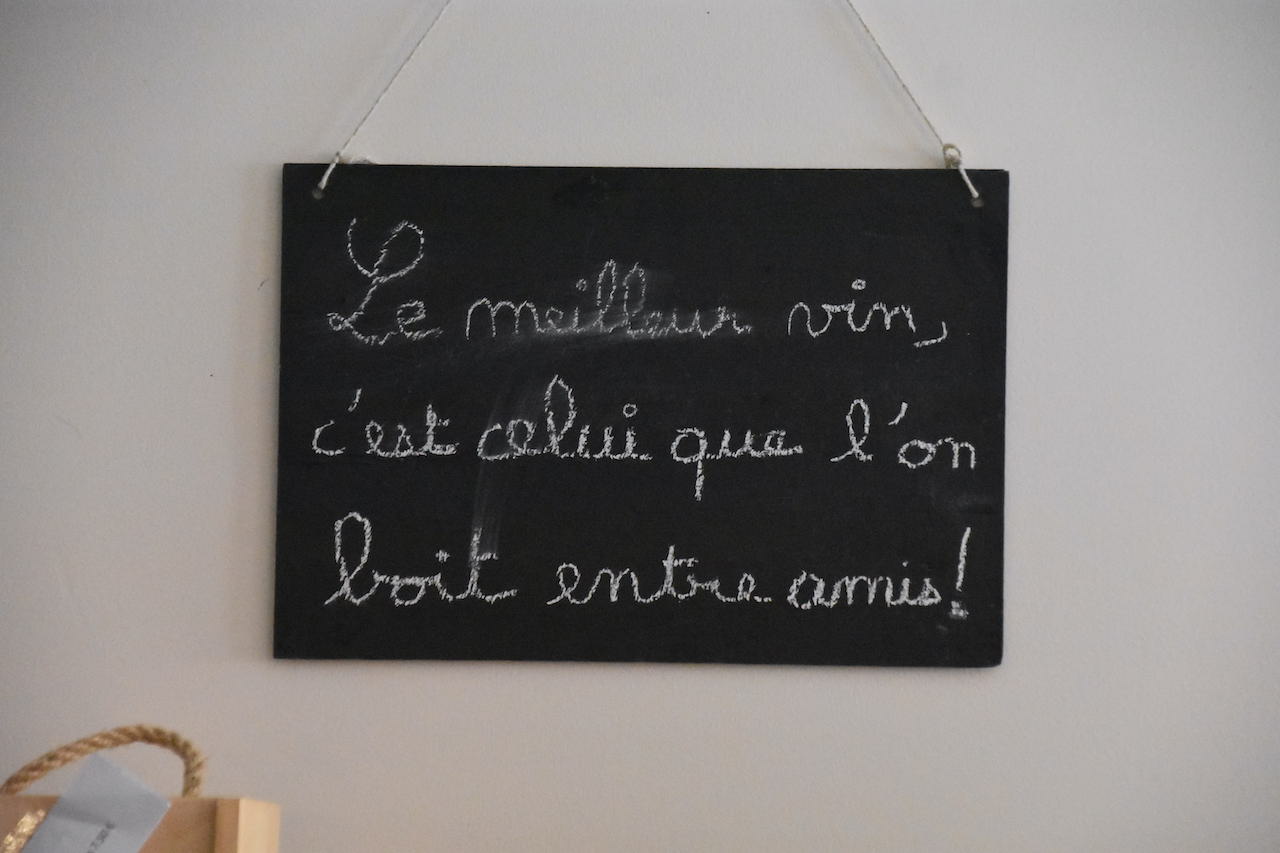 Le meilleur vin,
c'est celui que l'on
boit entre amis!